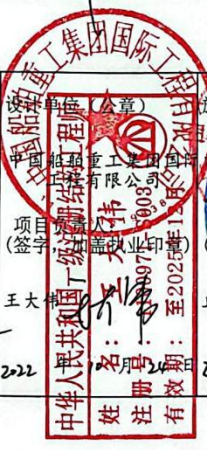 中国船舶重工集团国际工程有限公司
设计单位(公章)
中国船舶重工集团国际
工程有限公司
项目负责人:
(签字,加盖执业印章)
王大伟
2022年10月24日
中华人民共和国一级注册结构工程师
姓名:王大伟
注册号:
有效期:至2025年